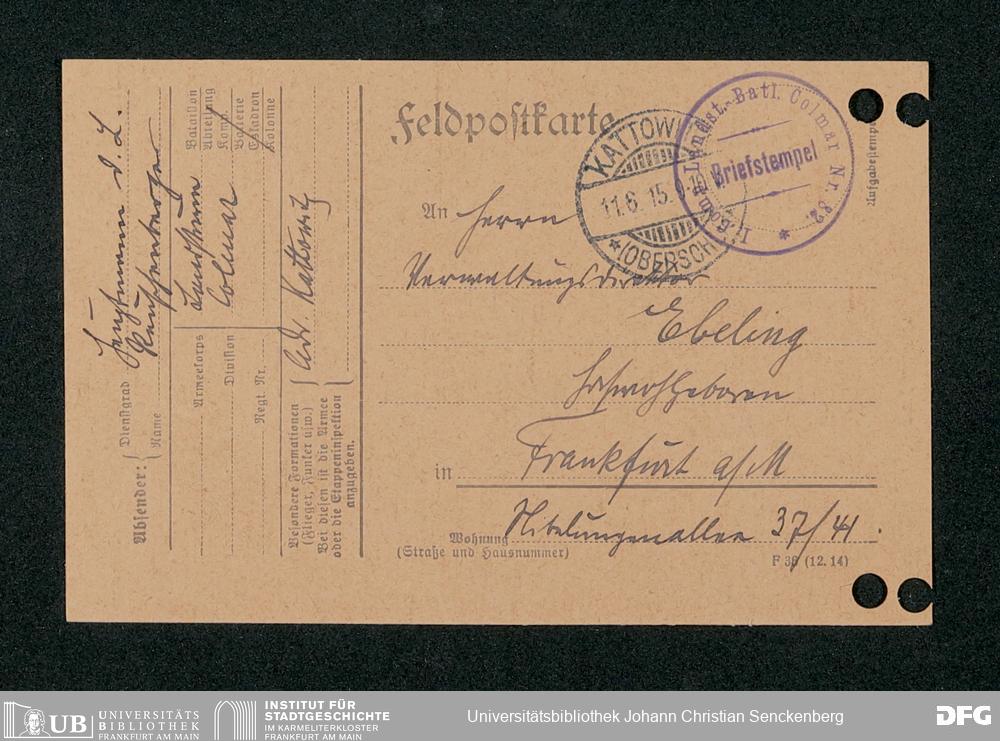 Feldpostkarte
KATTOWI
11.6.15. 9-10
*(OBERSCH
II. Komp. Landst.-Batl. Colmar Nr. 82
Briefstempel
*
An Herrn
Verwaltungsdirektor
Ebeling
Hochwohlgeboren
in Frankfurt a/M
Wohnung Nibelungenallee 37/41.
(Straße und Hausnummer)
F 36 (12. 14)
Absender:
Dienstgrad Hauptmann d. L.
Name
Bataillon
Abteilung
Komp.
Batterie
Eskadron
Kolonne
Landsturm
Colmar
Armeekorps
Division
Regt. Nr.
Besondere Formationen
(Flieger, Funker usw.)
Bei diesen ist die Armee
oder die Etappeninspektion
anzugeben.
Kattowitz
UB UNIVERSITÄTS
BIBLIOTHEK
FRANKFURT AM MAIN
INSTITUT FÜR
STADTGESCHICHTE
IM KARMELITERKLOSTER
FRANKFURT AM MAIN
Universitätsbibliothek Johann Christian Senckenberg
DFG